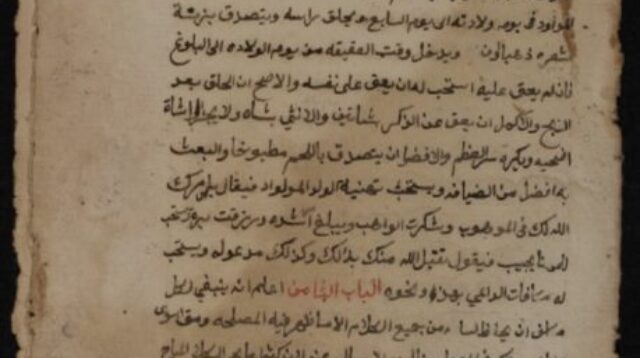 المولود في يوم ولادته الى يوم السابع ويحلق راسه ويتصدق بزنة
شعره ذهبا ويدخل وقت العقيقه من يوم الولاده الى البلوغ
فان لم يعق عليه استحب له ان يعق على نفسه والاصح ان الحلق بعد
الذبح والاكمل ان يعق عن الذكر شاتين والانثى بشاه ولا يجزي الا شاة
اضحيه ويكره كسر العظم والافضل ان يتصدق باللحم مطبوخا والبعث
به افضل من الضيافه ويستحب تهنية الوالد المولود فيقال بارك
الله لك في الموهوب وشكرت الواهب ويبلغ اشده ورزقت بره ويستحب
ان يجيب فيقول تقبل الله منك بذلك وكذلك مدعوله ويستحب
له مكافات الداعي بعده ونحوه الباب الثامن اعلم انه ينبغي لكل
مكلف ان يحفظ لسانه من جميع الكلام الا ما ظهر فيه المصلحه ومتى